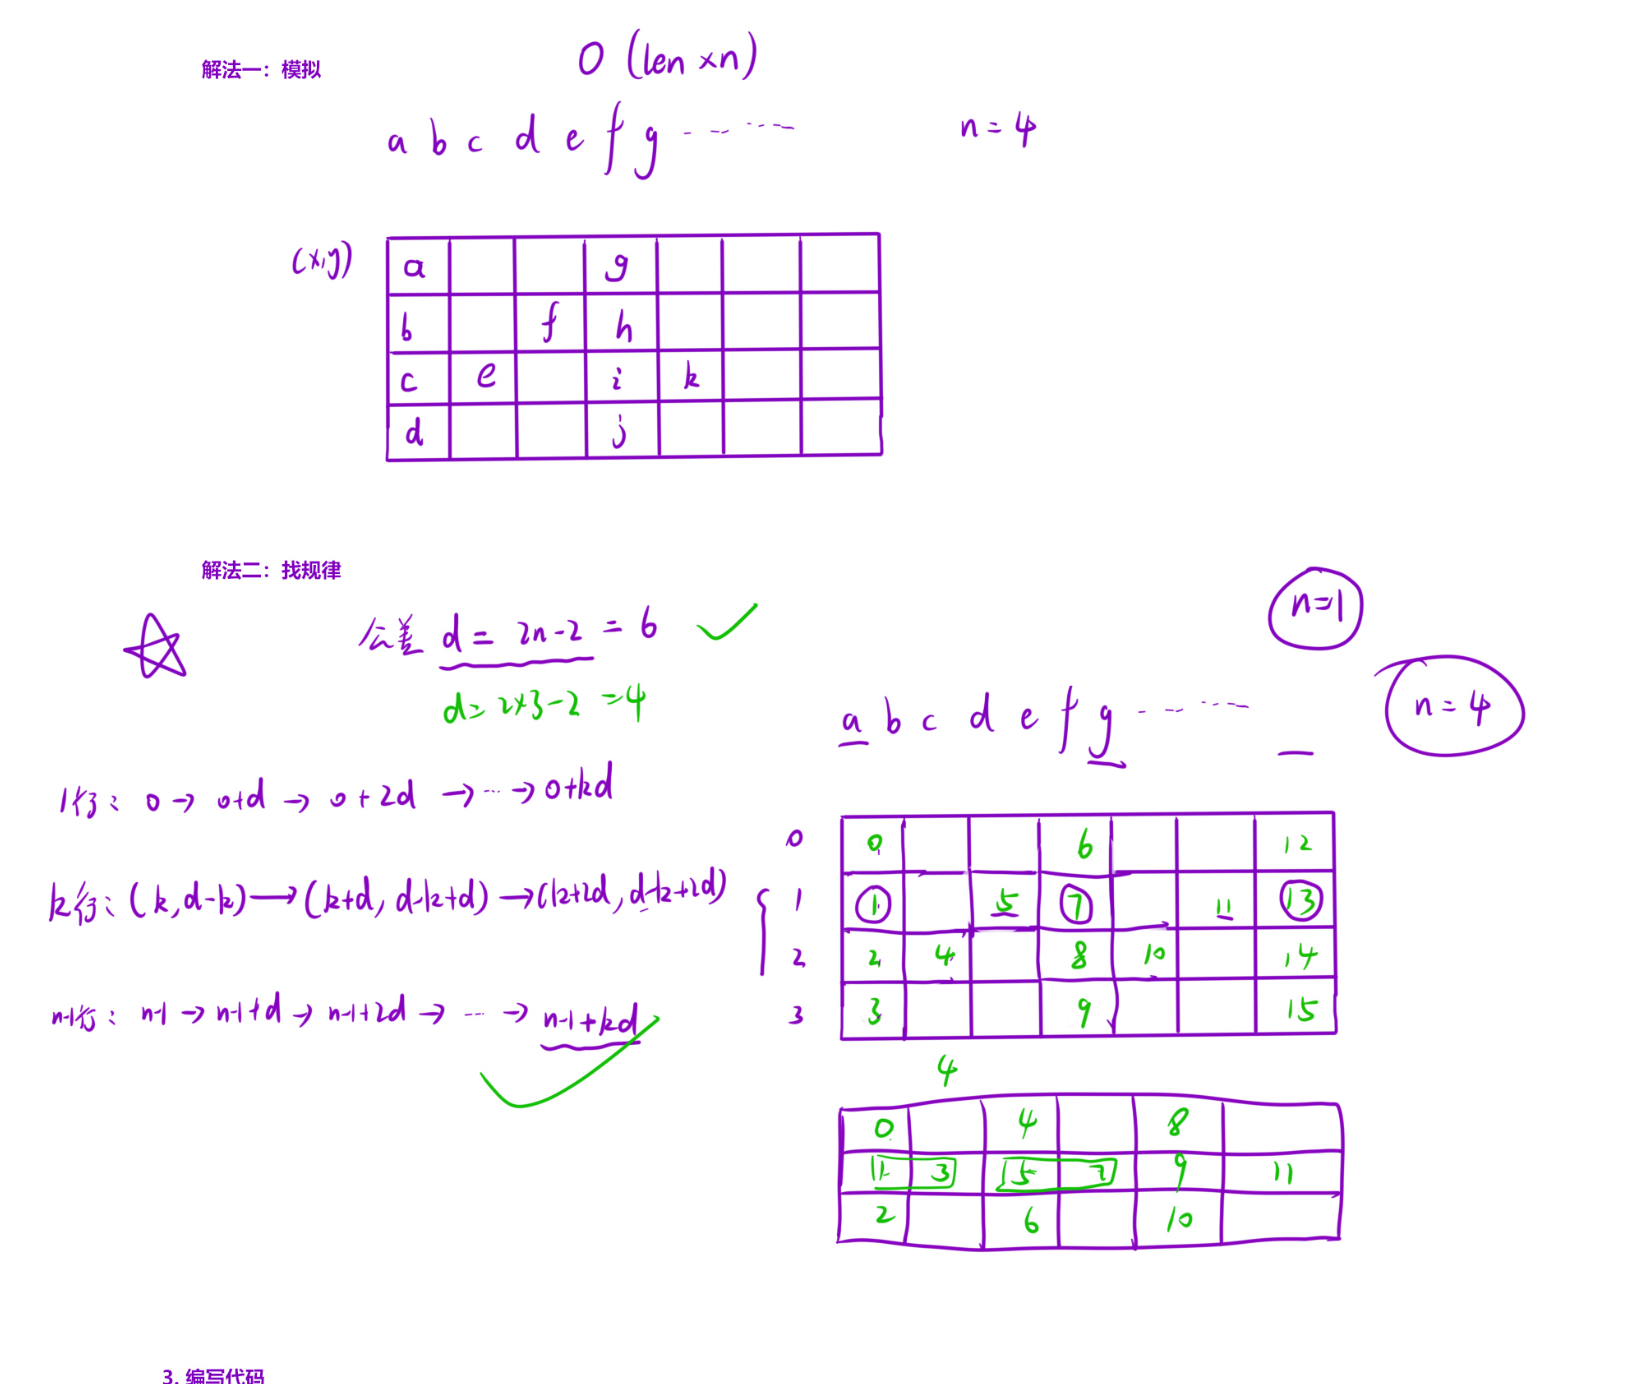 解法一：模拟
O (len ×n)
a b c d e f g ········
n = 4
(x,y)
a g
b f h
c e i k
d j
解法二：找规律
n=1
公差 d = 2n-2 = 6
d = 2×3-2 = 4
a b c d e f g ········
n = 4
1行： 0 → 0+d → 0+2d → ··· → 0+kd
k行：(k, d-k) → (k+d, d-k+d) → (k+2d, d-k+2d)
n-1行： n-1 → n-1+d → n-1+2d → ··· → n-1+kd
0 0 6 12
1 1 5 7 11 13
2 2 4 8 10 14
3 3 9 15
4
0 4 8
1 3 5 7 9 11
2 6 10
3. 编写代码